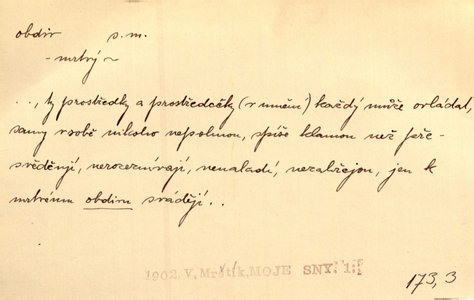 obdiv s. m.
- mrtvý ~
..., ty prostředky a prostředečky (v umění) každý může ovládat,
samy v sobě nikoho nepohnou, spíše klamou než pře-
svědčují, nerozeznívají, nenaladí, nezahřejou, jen k
mrtvému obdivu svádějí...
1902. V. Mrštík, MOJE SNY. I:
173,3